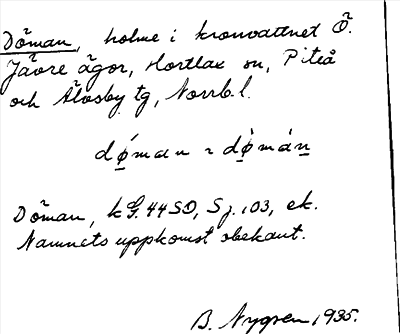 Döman, holme i kronvattnet Ö.
Jävre ägor, Hortlax sn, Piteå
och Älvsby tg, Norrb. l.
dǿman ~ dǿmán
Döman, kG. 44SO, Sj. 103, ek.
Namnets uppkomst obekant.
B. Nygren, 1935.